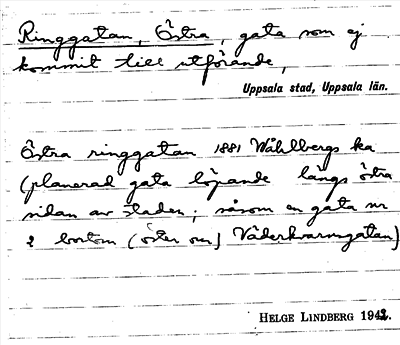 Ringgatan, Östra, gata som ej
kommit till utförande,
Uppsala stad, Uppsala län.
Östra ringgatan 1881 Wåhlbergs ka
(planerad gata löpande längs östra
sidan av staden; såsom en gata nr
2 bortom (öster om) Väderkvarnsgatan)
HELGE LINDBERG 1942.